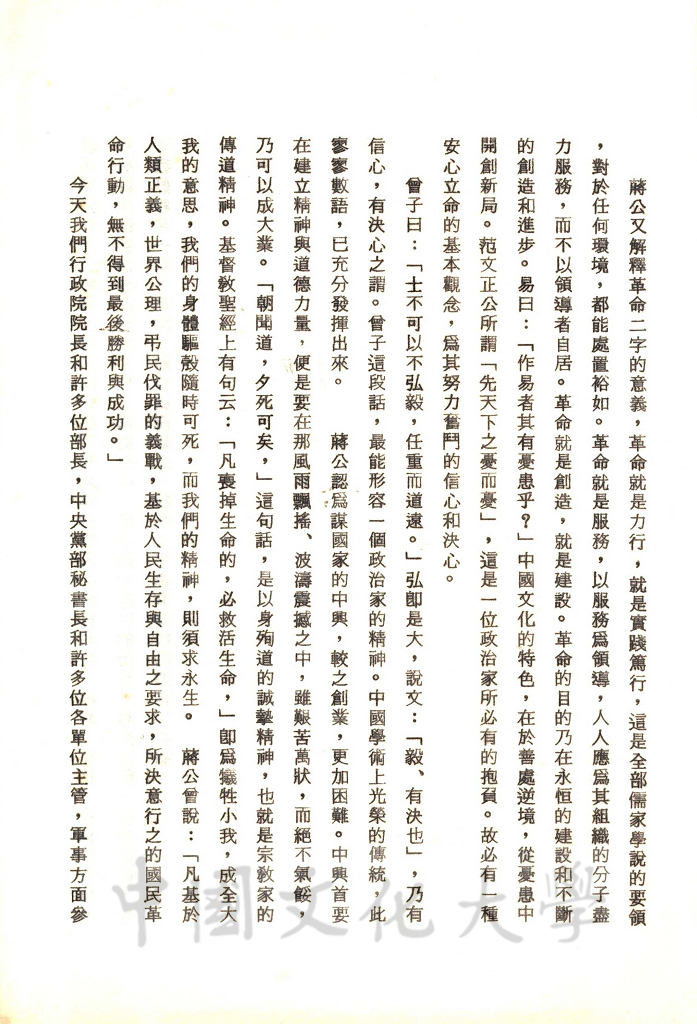 蔣公又解釋革命二字的意義，革命就是力行，就是實踐篤行，這是全部儒家學說的要領
，對於任何環境，都能處置裕如。革命就是服務，以服務爲領導，人人應爲其組織的分子盡
力服務，而不以領導者自居。革命就是創造，就是建設。革命的目的乃在永恒的建設和不斷
的創造和進步。易曰：「作易者其有憂患乎？」中國文化的特色，在於善處逆境，從憂患中
開創新局。范文正公所謂「先天下之憂而憂」，這是一位政治家所必有的抱負。故必有一種
安心立命的基本觀念，爲其努力奮鬥的信心和決心。
曾子曰：「士不可以不弘毅，任重而道遠。」弘卽是大，說文：「毅、有決也」，乃有
信心，有決心之謂。曾子這段話，最能形容一個政治家的精神。中國學術上光榮的傳統，此
寥寥數語，已充分發揮出來。　蔣公認爲謀國家的中興，較之創業，更加困難。中興首要
在建立精神與道德力量，便是要在那風雨飄搖、波濤震撼之中，雖艱苦萬狀，而絕不氣餒，
乃可以成大業。「朝聞道，夕死可矣，」這句話，是以身殉道的誠摯精神，也就是宗敎家的
傳道精神。基督敎聖經上有句云：「凡喪掉生命的，必救活生命，」卽爲犧牲小我，成全大
我的意思，我們的身體軀殼隨時可死，而我們的精神，則須求永生。　蔣公曾說：「凡基於
人類正義，世界公理，弔民伐罪的義戰，基於人民生存與自由之要求，所決意行之的國民革
命行動，無不得到最後勝利與成功。」
今天我們行政院院長和許多位部長，中央黨部秘書長和許多位各單位主管，軍事方面參
中國文化大學